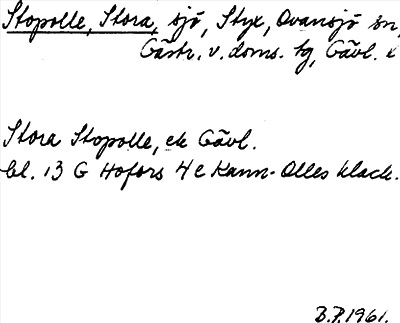 Stopolle, Stora, sjö, Styx, Ovansjö sn,
Gästr. v. doms. tg, Gävl. l
Stora Stopolle, ek Gävl.
bl. 13 G Hofors 4 e Kann-Olles klack.
B.P. 1961.